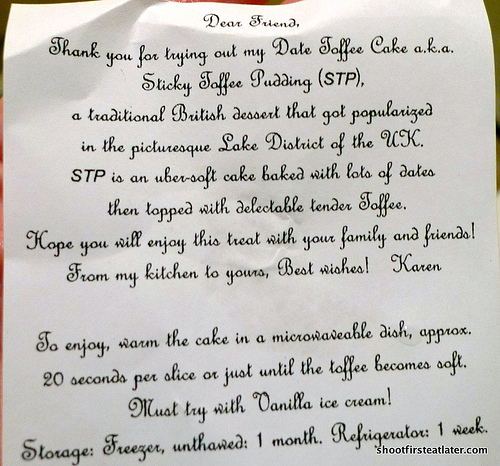 Dear Friend,
Thank you for trying out my Date Toffee Cake a.k.a.
Sticky Toffee Pudding (STP),
a traditional British dessert that got popularized
in the picturesque Lake District of the UK.
STP is an uber-soft cake baked with lots of dates
then topped with delectable tender Toffee.
Hope you will enjoy this treat with your family and friends!
From my kitchen to yours, Best wishes! Karen
To enjoy, warm the cake in a microwaveable dish, approx.
20 seconds per slice or just until the toffee becomes soft.
Must try with Vanilla ice cream!
Storage: Freezer, unthawed: 1 month. Refrigerator: 1 week.
shootfirsteatlater.com